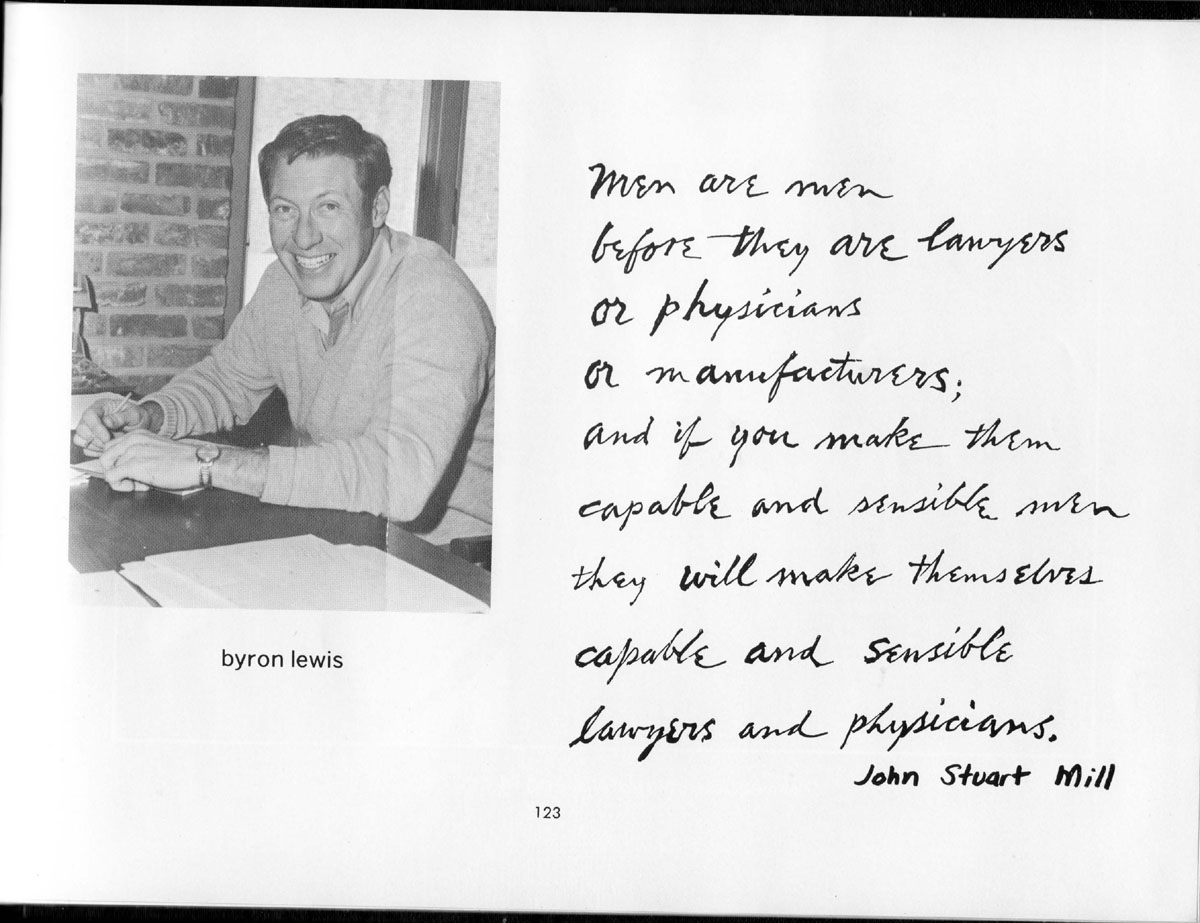 byron lewis
Men are men
before they are lawyers
or physicians
or manufacturers;
and if you make them
capable and sensible men
they will make themselves
capable and sensible
lawyers and physicians.
John Stuart Mill
123